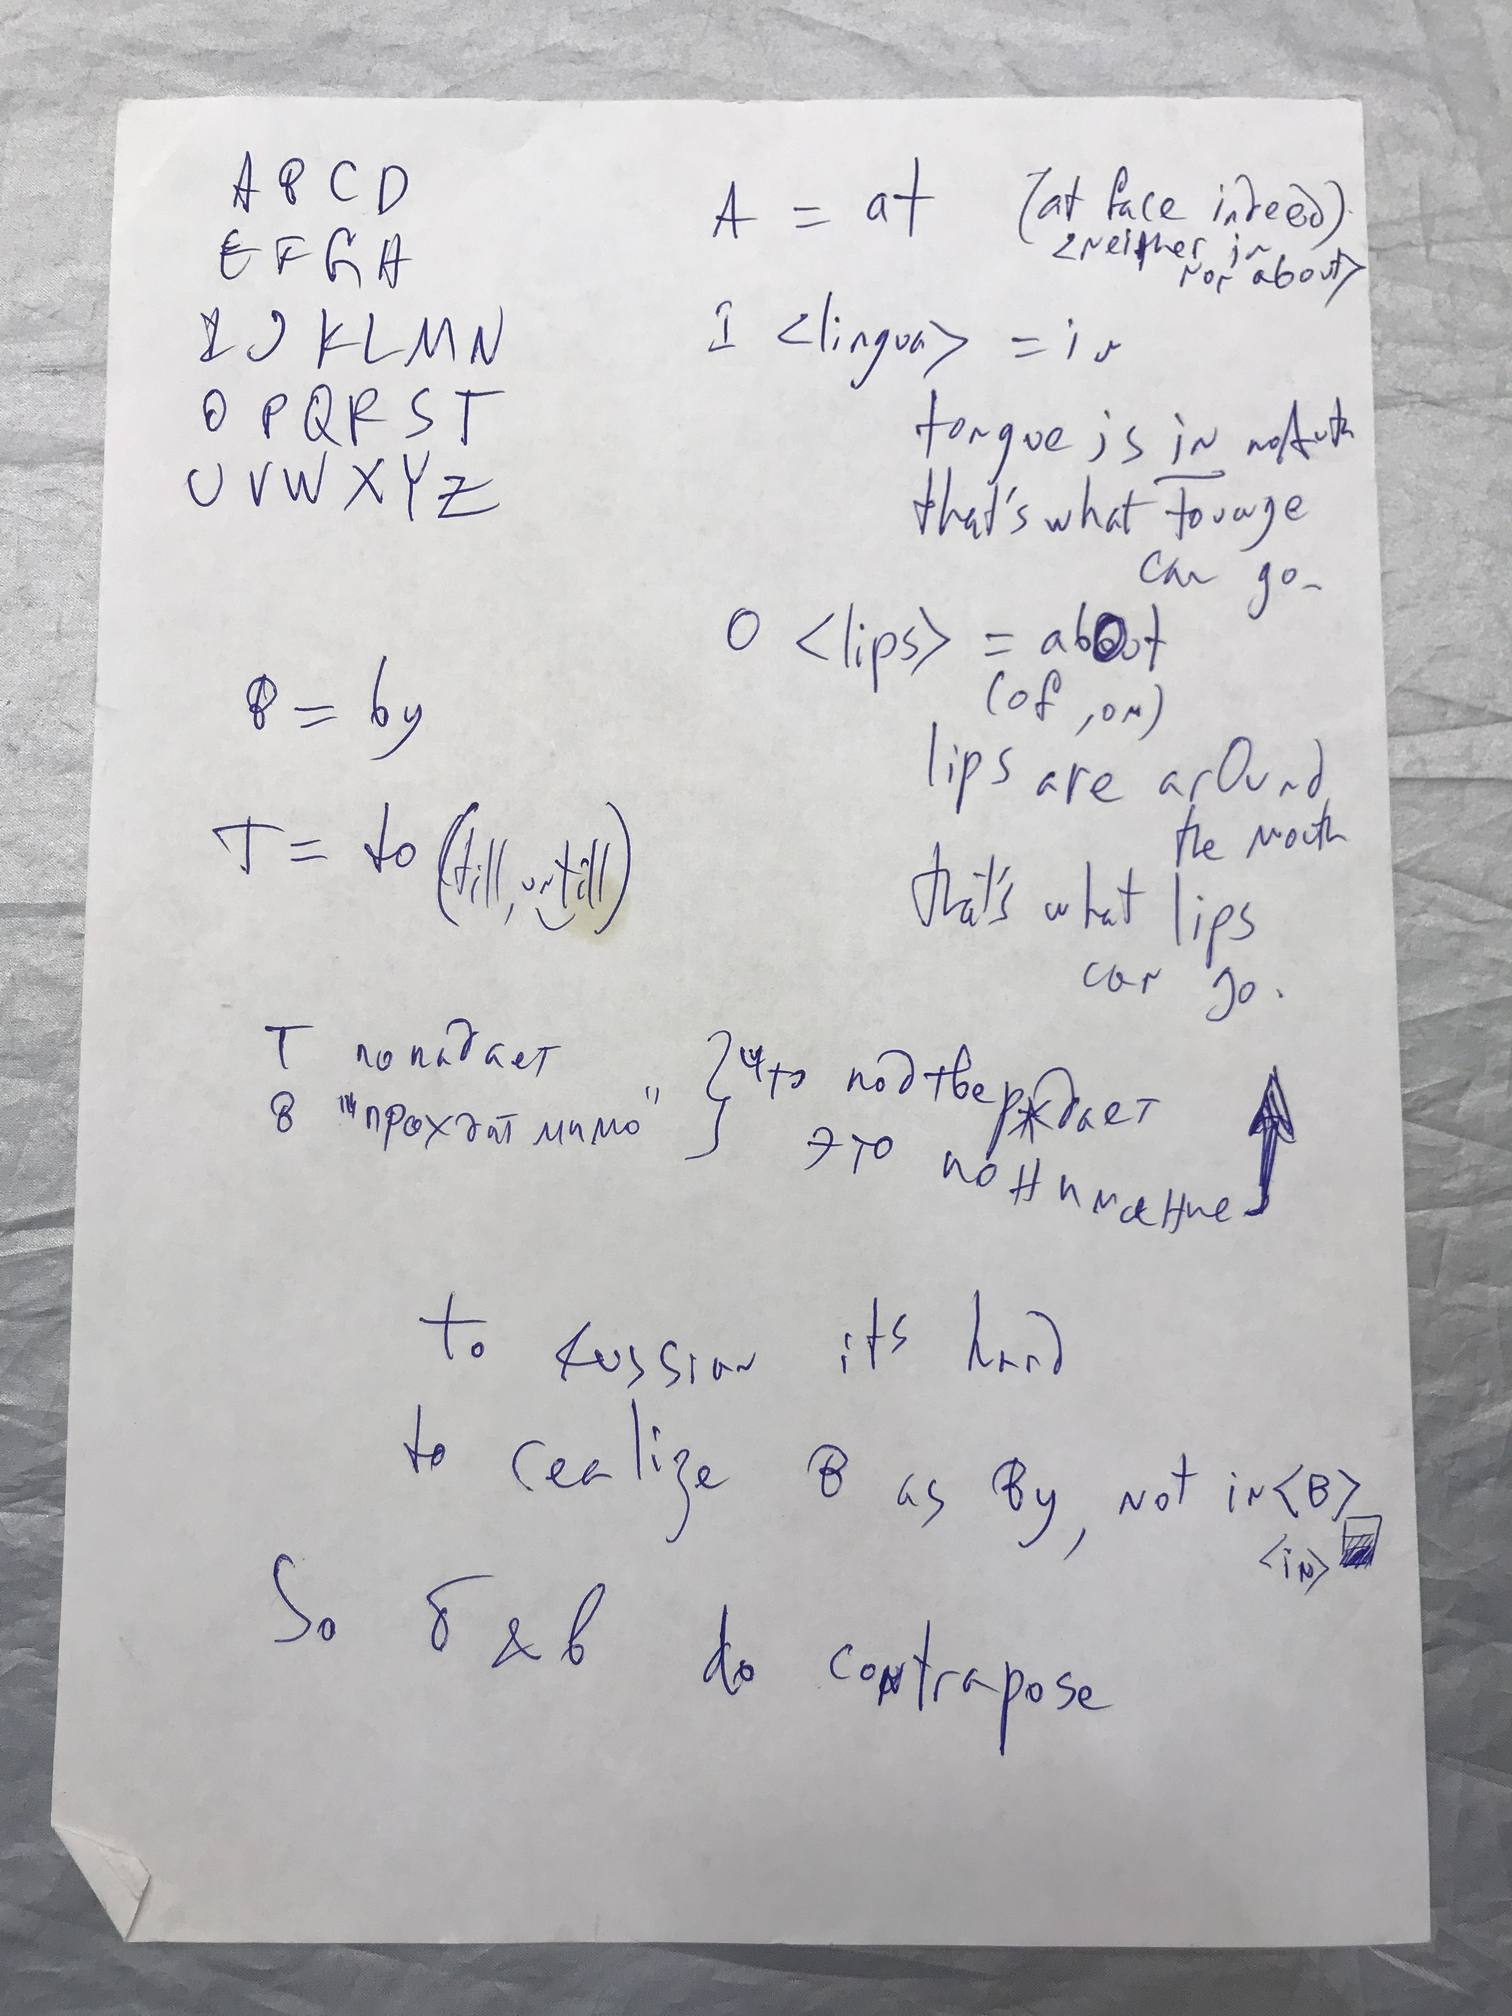 A B C D
E F G H
I J K L M N
O P Q R S T
U V W X Y Z
A = at (at face indeed)
<neither in
nor about>
I <lingua> = in
tongue is in mouth
that's what tounge
can go
O <lips> = about
(of, on)
lips are arOund
the mouth
that's what lips
can go.
B = by
T = to (till, untill)
T попадает
B "проходит мимо" } что подтверждает
это понимание
to Russian its hard
to realize B as By, not in <B>
<in>
So б & в do contrapose